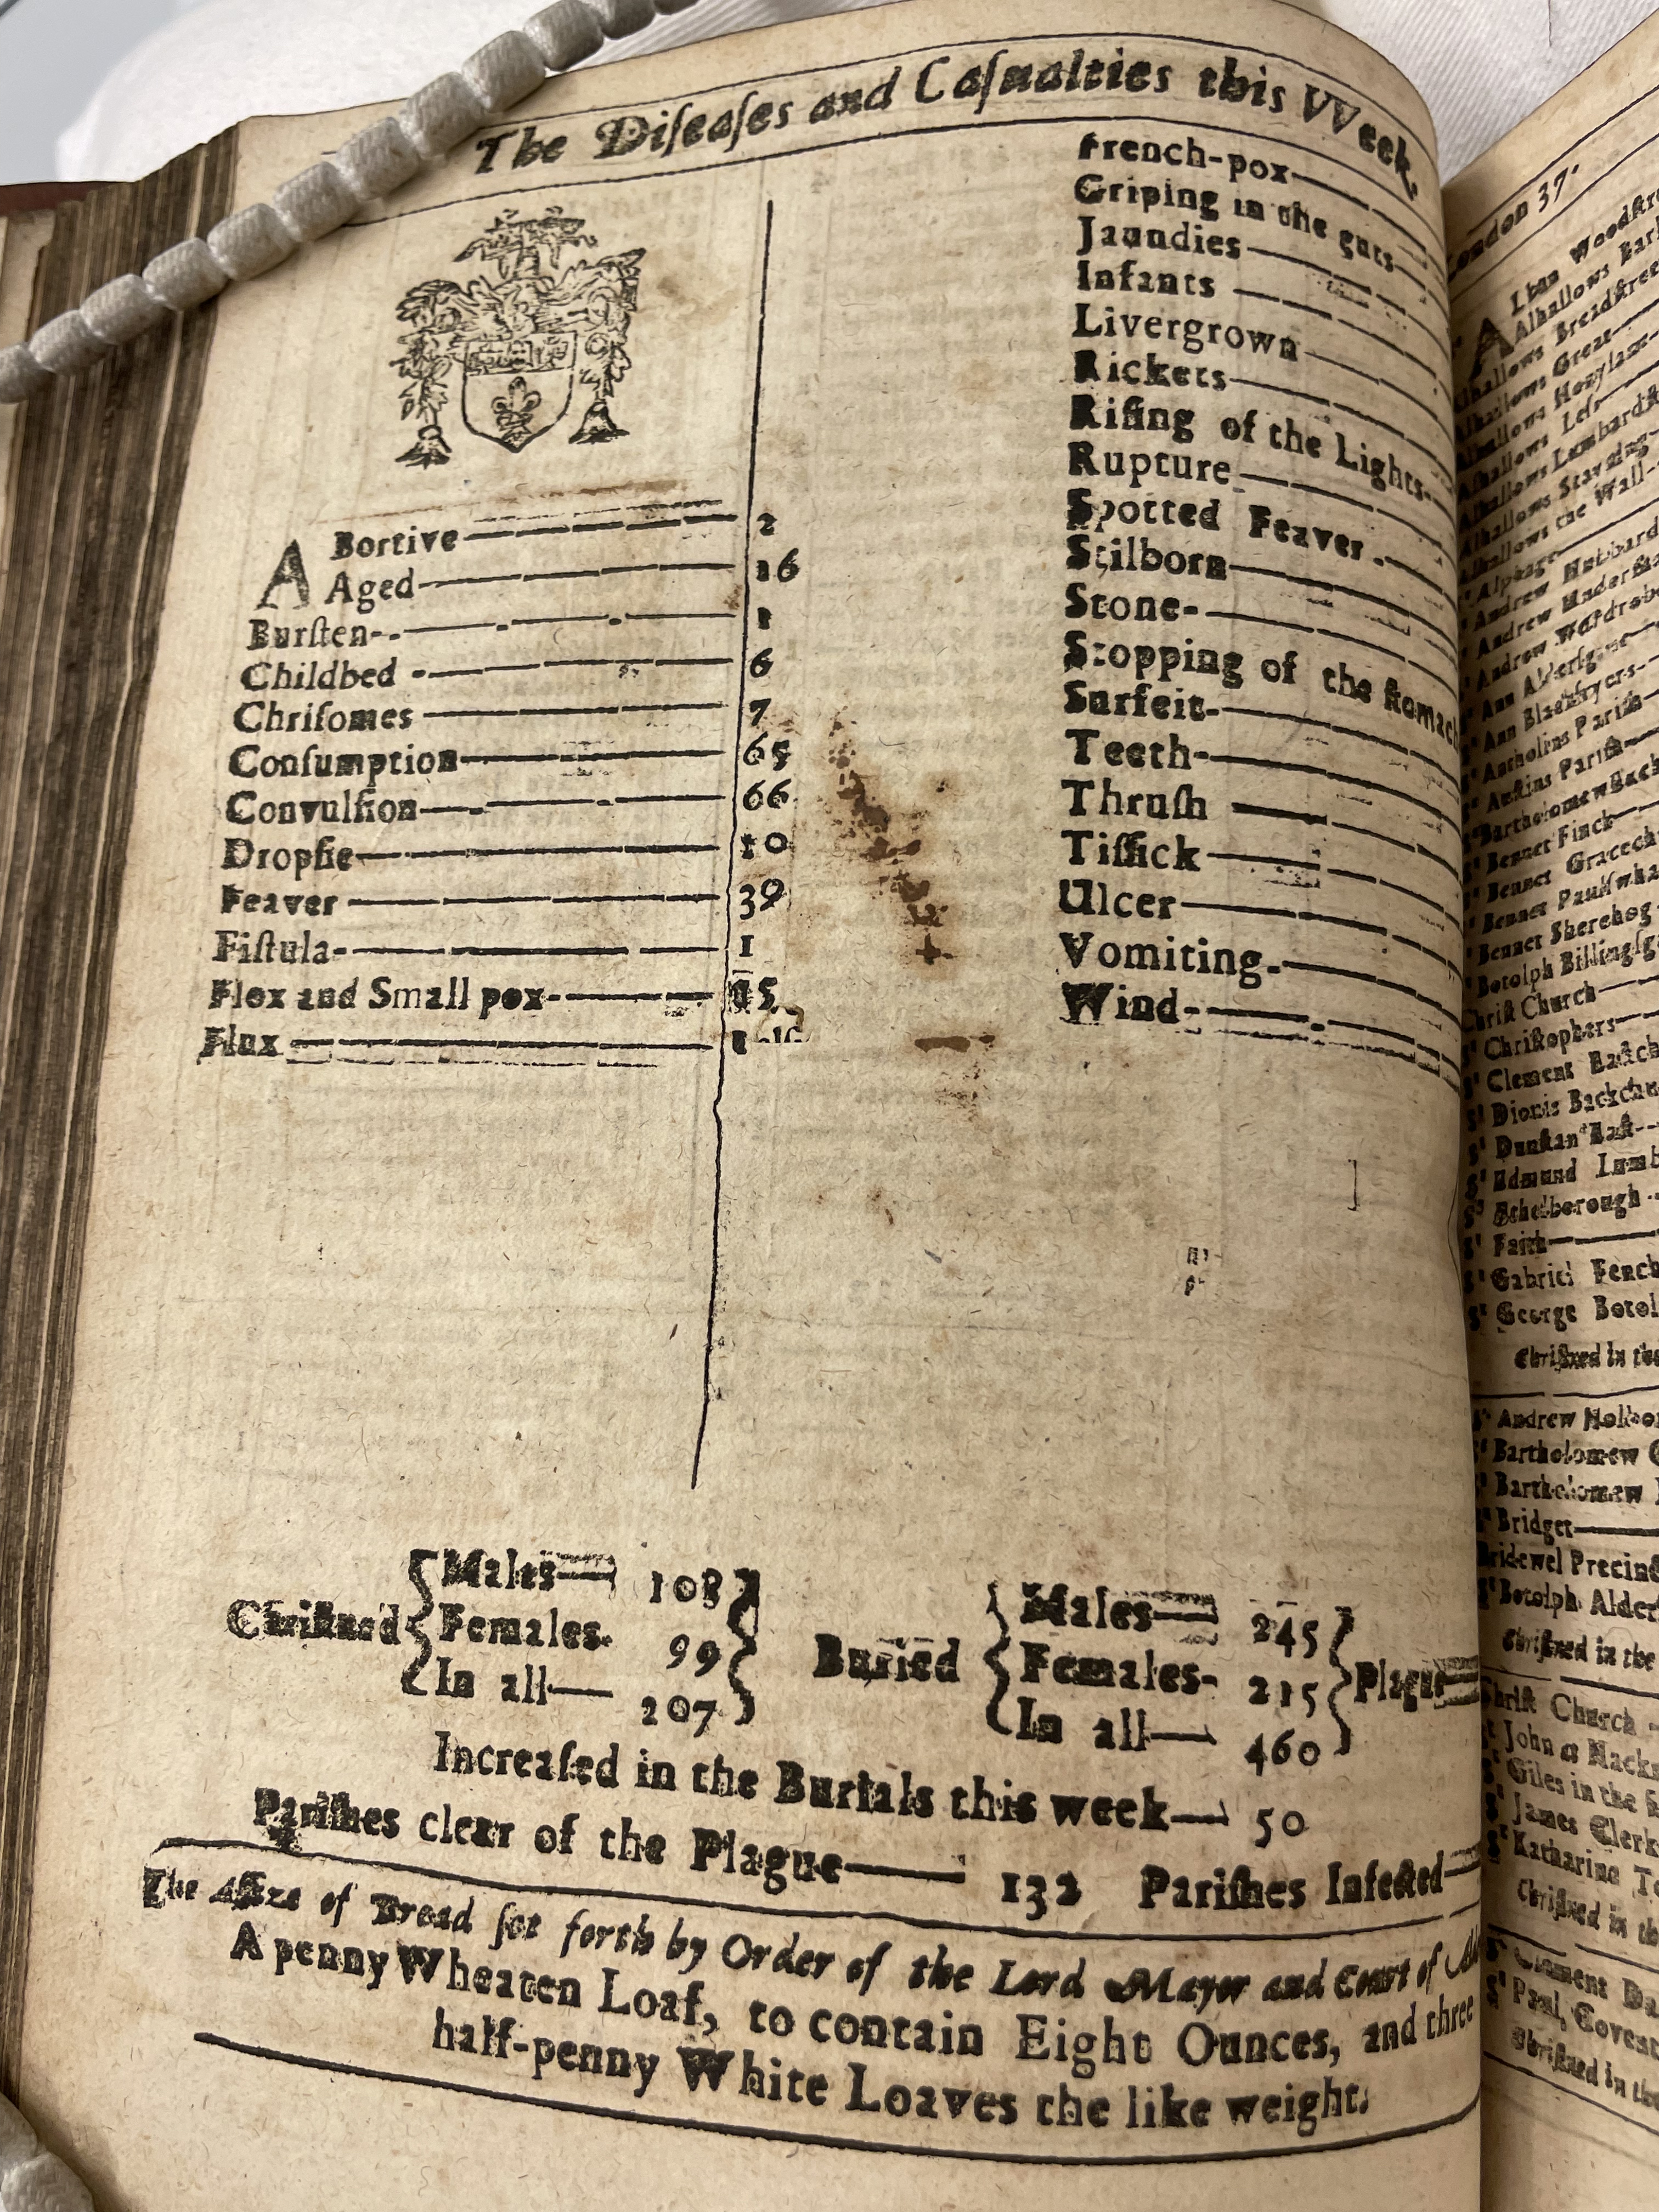 The Diſeaſes and Caſualties this VVeek.
ABortive 2
Aged 16
Burſten 1
Childbed 6
Chriſomes 7
Conſumption 65
Convulſion 66
Dropſie 10
Feaver 39
Fiſtula 1
Flox and Small pox 15
Flux 1
French-pox
Griping in the guts
Jaundies
Infants
Livergrown
Rickets
Riſing of the Lights
Rupture
Spotted Feaver
Stilborn
Stone
Stopping of the ſtomach
Surfeit
Teeth
Thruſh
Tiſſick
Ulcer
Vomiting
Wind
Chriſtned
Males 108
Females 99
In all 207
Buried
Males 245
Females 215
In all 460
Plague
Increaſed in the Burials this week 50
Pariſhes clear of the Plague 132 Pariſhes Infected
The Aſſize of Bread ſet forth by Order of the Lord Mayor and Court of
A penny Wheaten Loaf, to contain Eight Ounces, and three
half-penny White Loaves the like weight.
London 37.
Alban Woodſtre
Alhallows Bark
Alhallows Breadſtree
Alhallows Great
Alhallows Honylane
Alhallows Leſs
Alhallows Lombardſt
Alhallows Staining
Alhallows the Wall
St Alphage
St Andrew Hubbard
St Andrew Underſha
St Andrew Wardrobe
St Ann Alderſgate
St Ann Blackfryers
St Antholins Pariſh
St Auſtins Pariſh
St Bartholomew Exch
St Bennet Finck
St Bennet Gracech
St Bennet Paulſwha
St Bennet Sherehog
St Botolph Billingſga
Chriſt Church
St Chriſtophers
St Clement Eaſtch
St Dionis Backchu
St Dunſtan Eaſt
St Edmund Lumb
St Ethelborough
St Faith
St Gabriel Fench
St George Botol
Chriſtned in the
St Andrew Holbor
St Bartholomew G
St Bartholomew
St Bridget
Bridewel Precinct
St Botolph Alder
Chriſtned in the
Chriſt Church
St John at Hackn
St Giles in the f
St James Clerk
St Katharine To
Chriſtned in th
St Clement Da
St Paul, Covent
Chriſtned in the